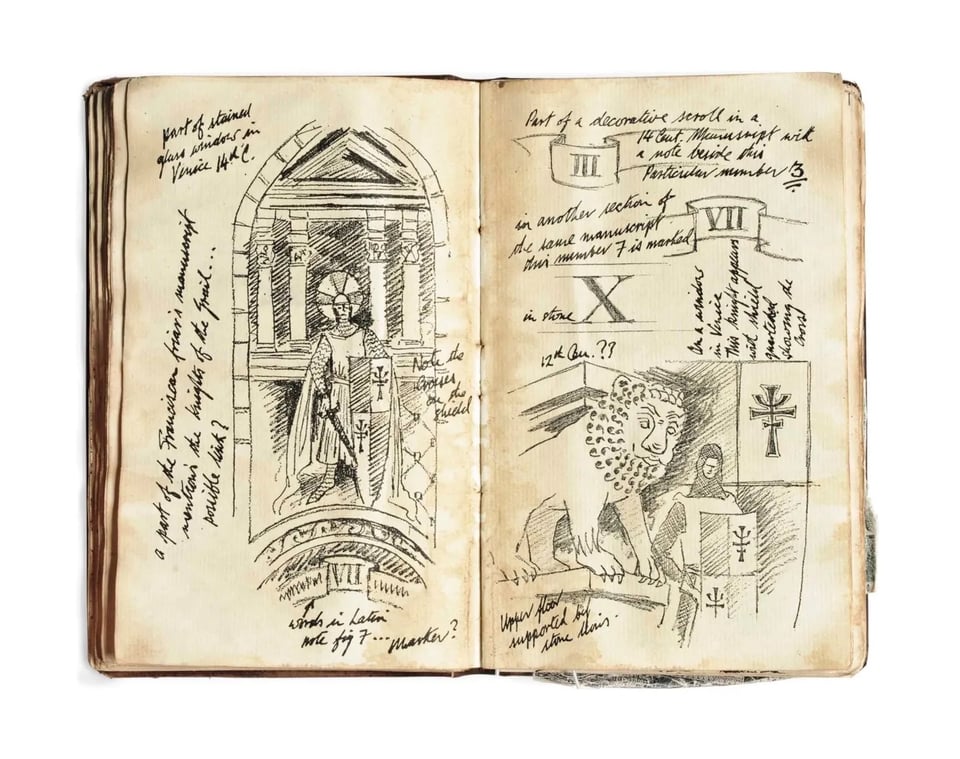 part of stained
glass window in
Venice 14th C.
a part of the Franciscan friar's manuscript
mentions the knights of the Grail...
possible link?
Note the
Crosses
on the
shield
VII
words in Latin
note fig 7 ... marker?
Part of a decorative scroll in a
14 Cent. Manuscript with
a note beside this
Particular number 3
III
in another section of
the same manuscript
this number 7 is marked
VII
X
in stone
On a window
in Venice
This knight appears
with shield
quartered
showing the
12th Cen. ??
Upper floor
supported by
stone lions.